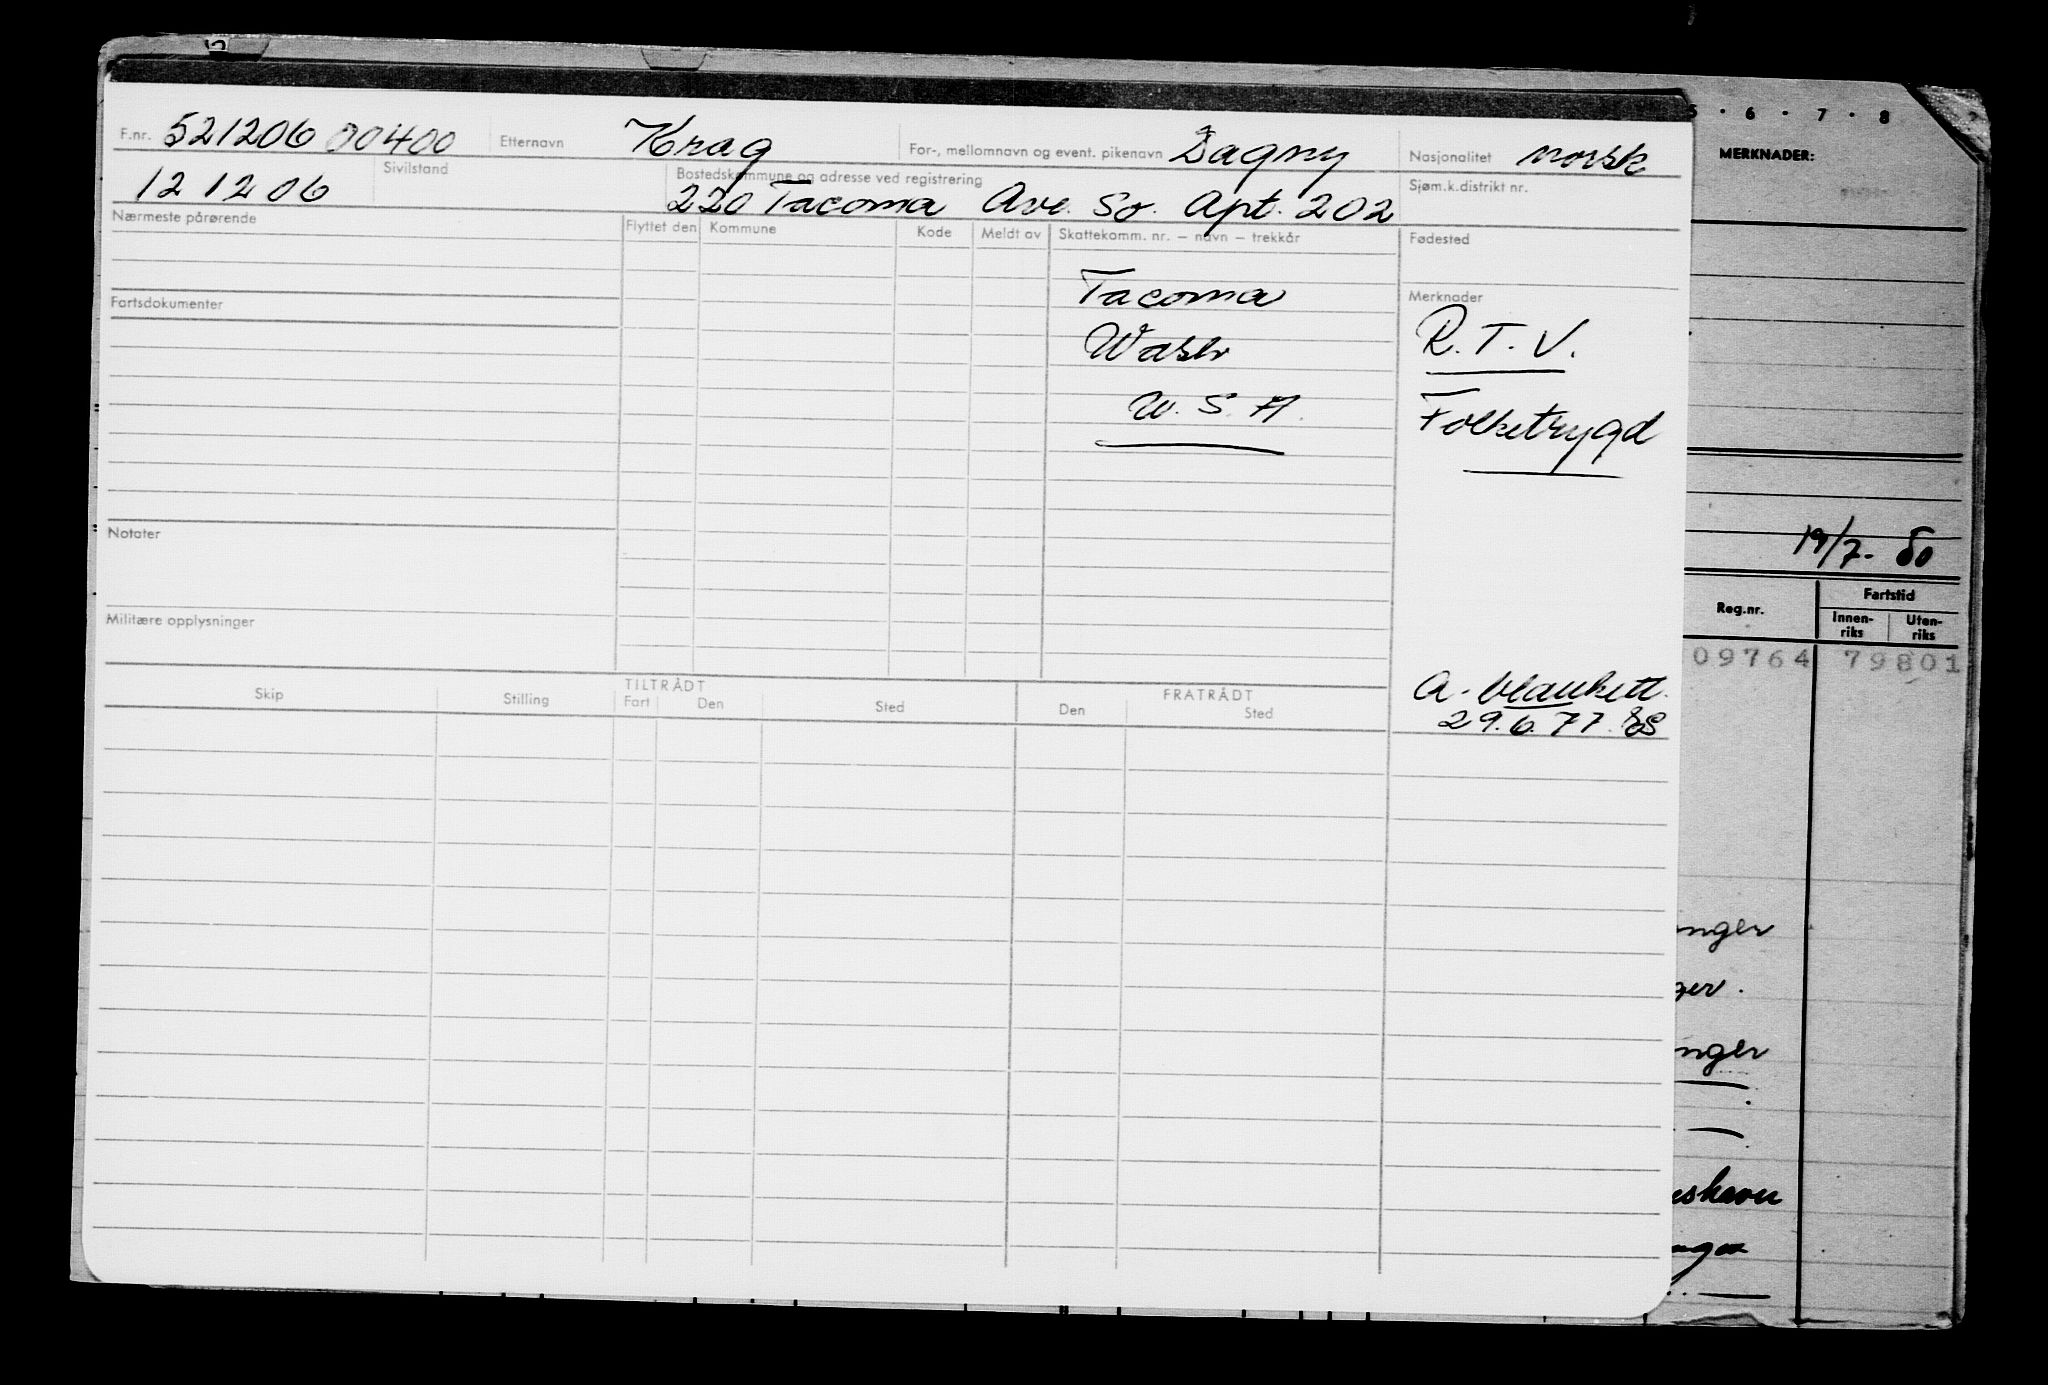 F.nr. 521206 00400 Etternavn Krag For-, mellomnavn og event. pikenavn Dagny Nasjonalitet norsk
12 12 06 Sivilstand Bostedskommune og adresse ved registrering 220 Tacoma Ave. So. Apt. 202 Sjøm.k.distrikt nr.
Nærmeste pårørende Flyttet den Kommune Kode Meldt av Skattekomm. nr. – navn – trekkår Fødested
Tacoma
Fartsdokumenter Merknader
Wash R. T. V.
U. S. A. Folketrygd
Notater
Militære opplysninger
A-blankett.
29.6.77.
Skip Stilling TILTRÅDT Fart Den Sted FRATRÅDT Den Sted
5 · 6 · 7 · 8
MERKNADER:
19/7- 80
Reg.nr. Fartstid
Innen-riks Uten-riks
09764 79801
nger
ger.
nger